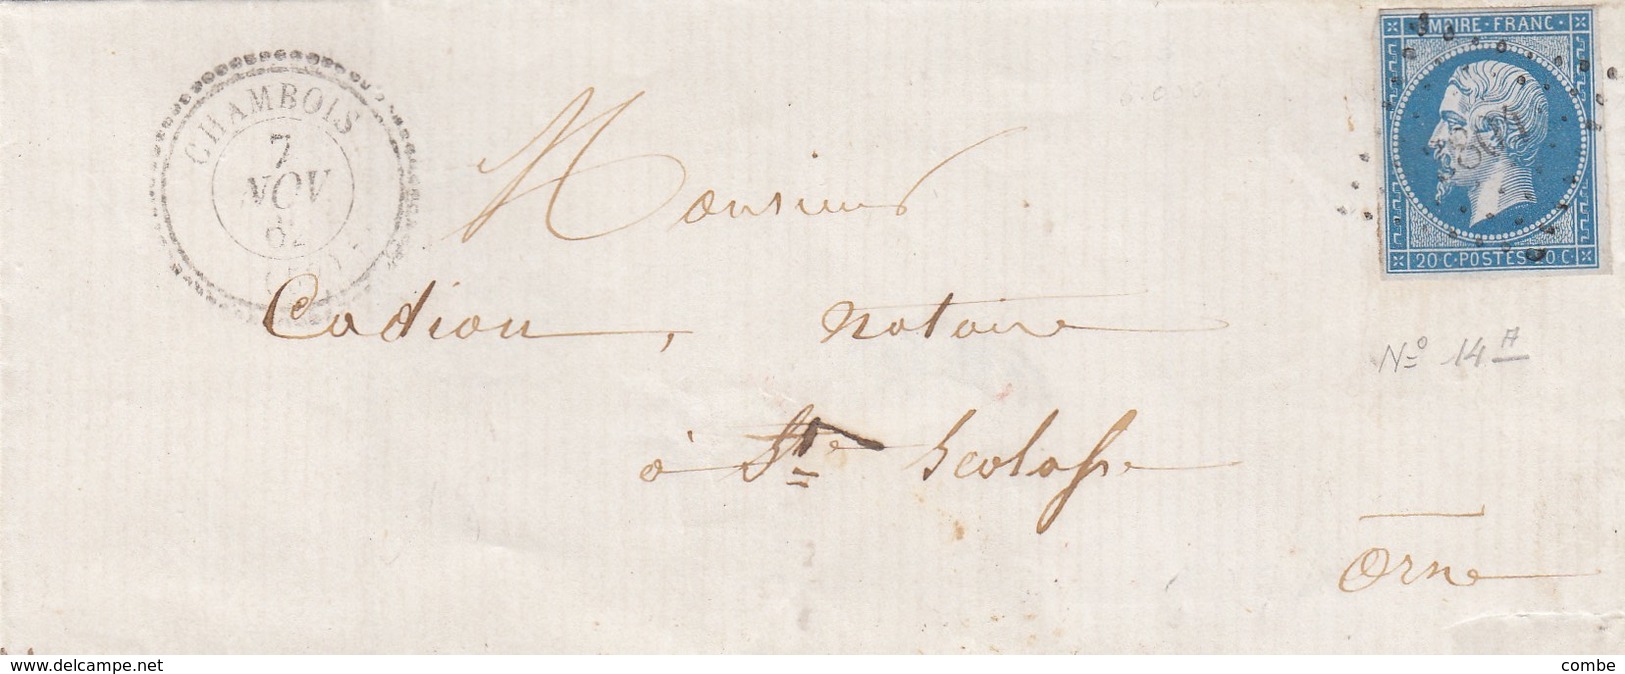 EMPIRE · FRANC ·
CHAMBOIS
7
NOV
62
20 C · POSTES · 20 C ·
Monsieur
Cadiou, notaire
No 14 A
à Ste Scolasse
Orne
www.delcampe.net
combe